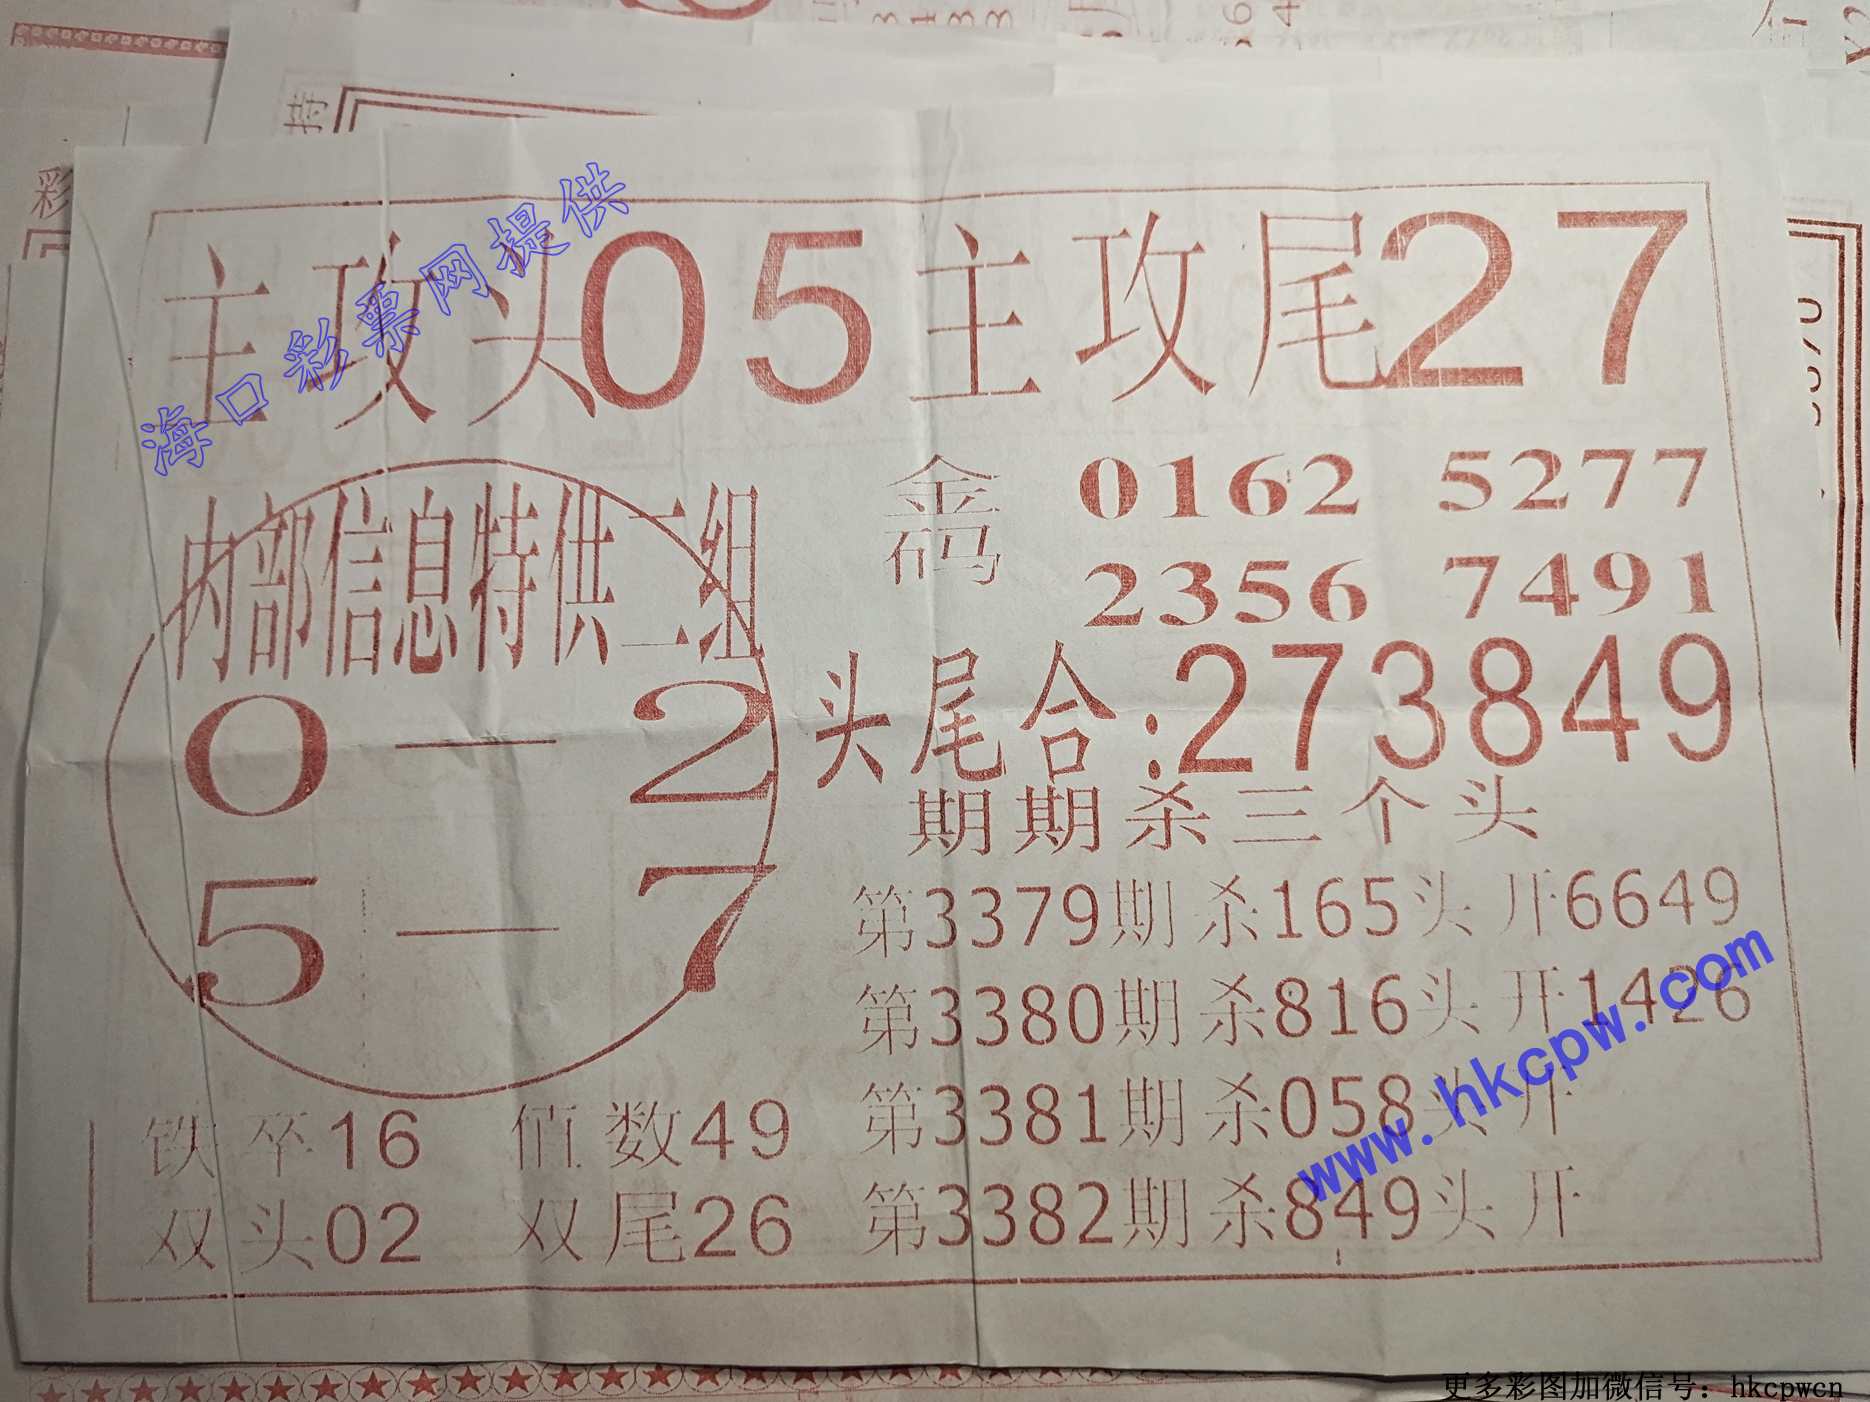 海口彩票网提供
主攻头05主攻尾27
内部信息特供二组
0—2
5—7
金码 0162 5277
2356 7491
头尾合:273849
期期杀三个头
第3379期杀165头开6649
第3380期杀816头开1426
第3381期杀058头开
第3382期杀849头开
铁卒16 值数49
双头02 双尾26
www.hkcpw.com
更多彩图加微信号：hkcpwcn